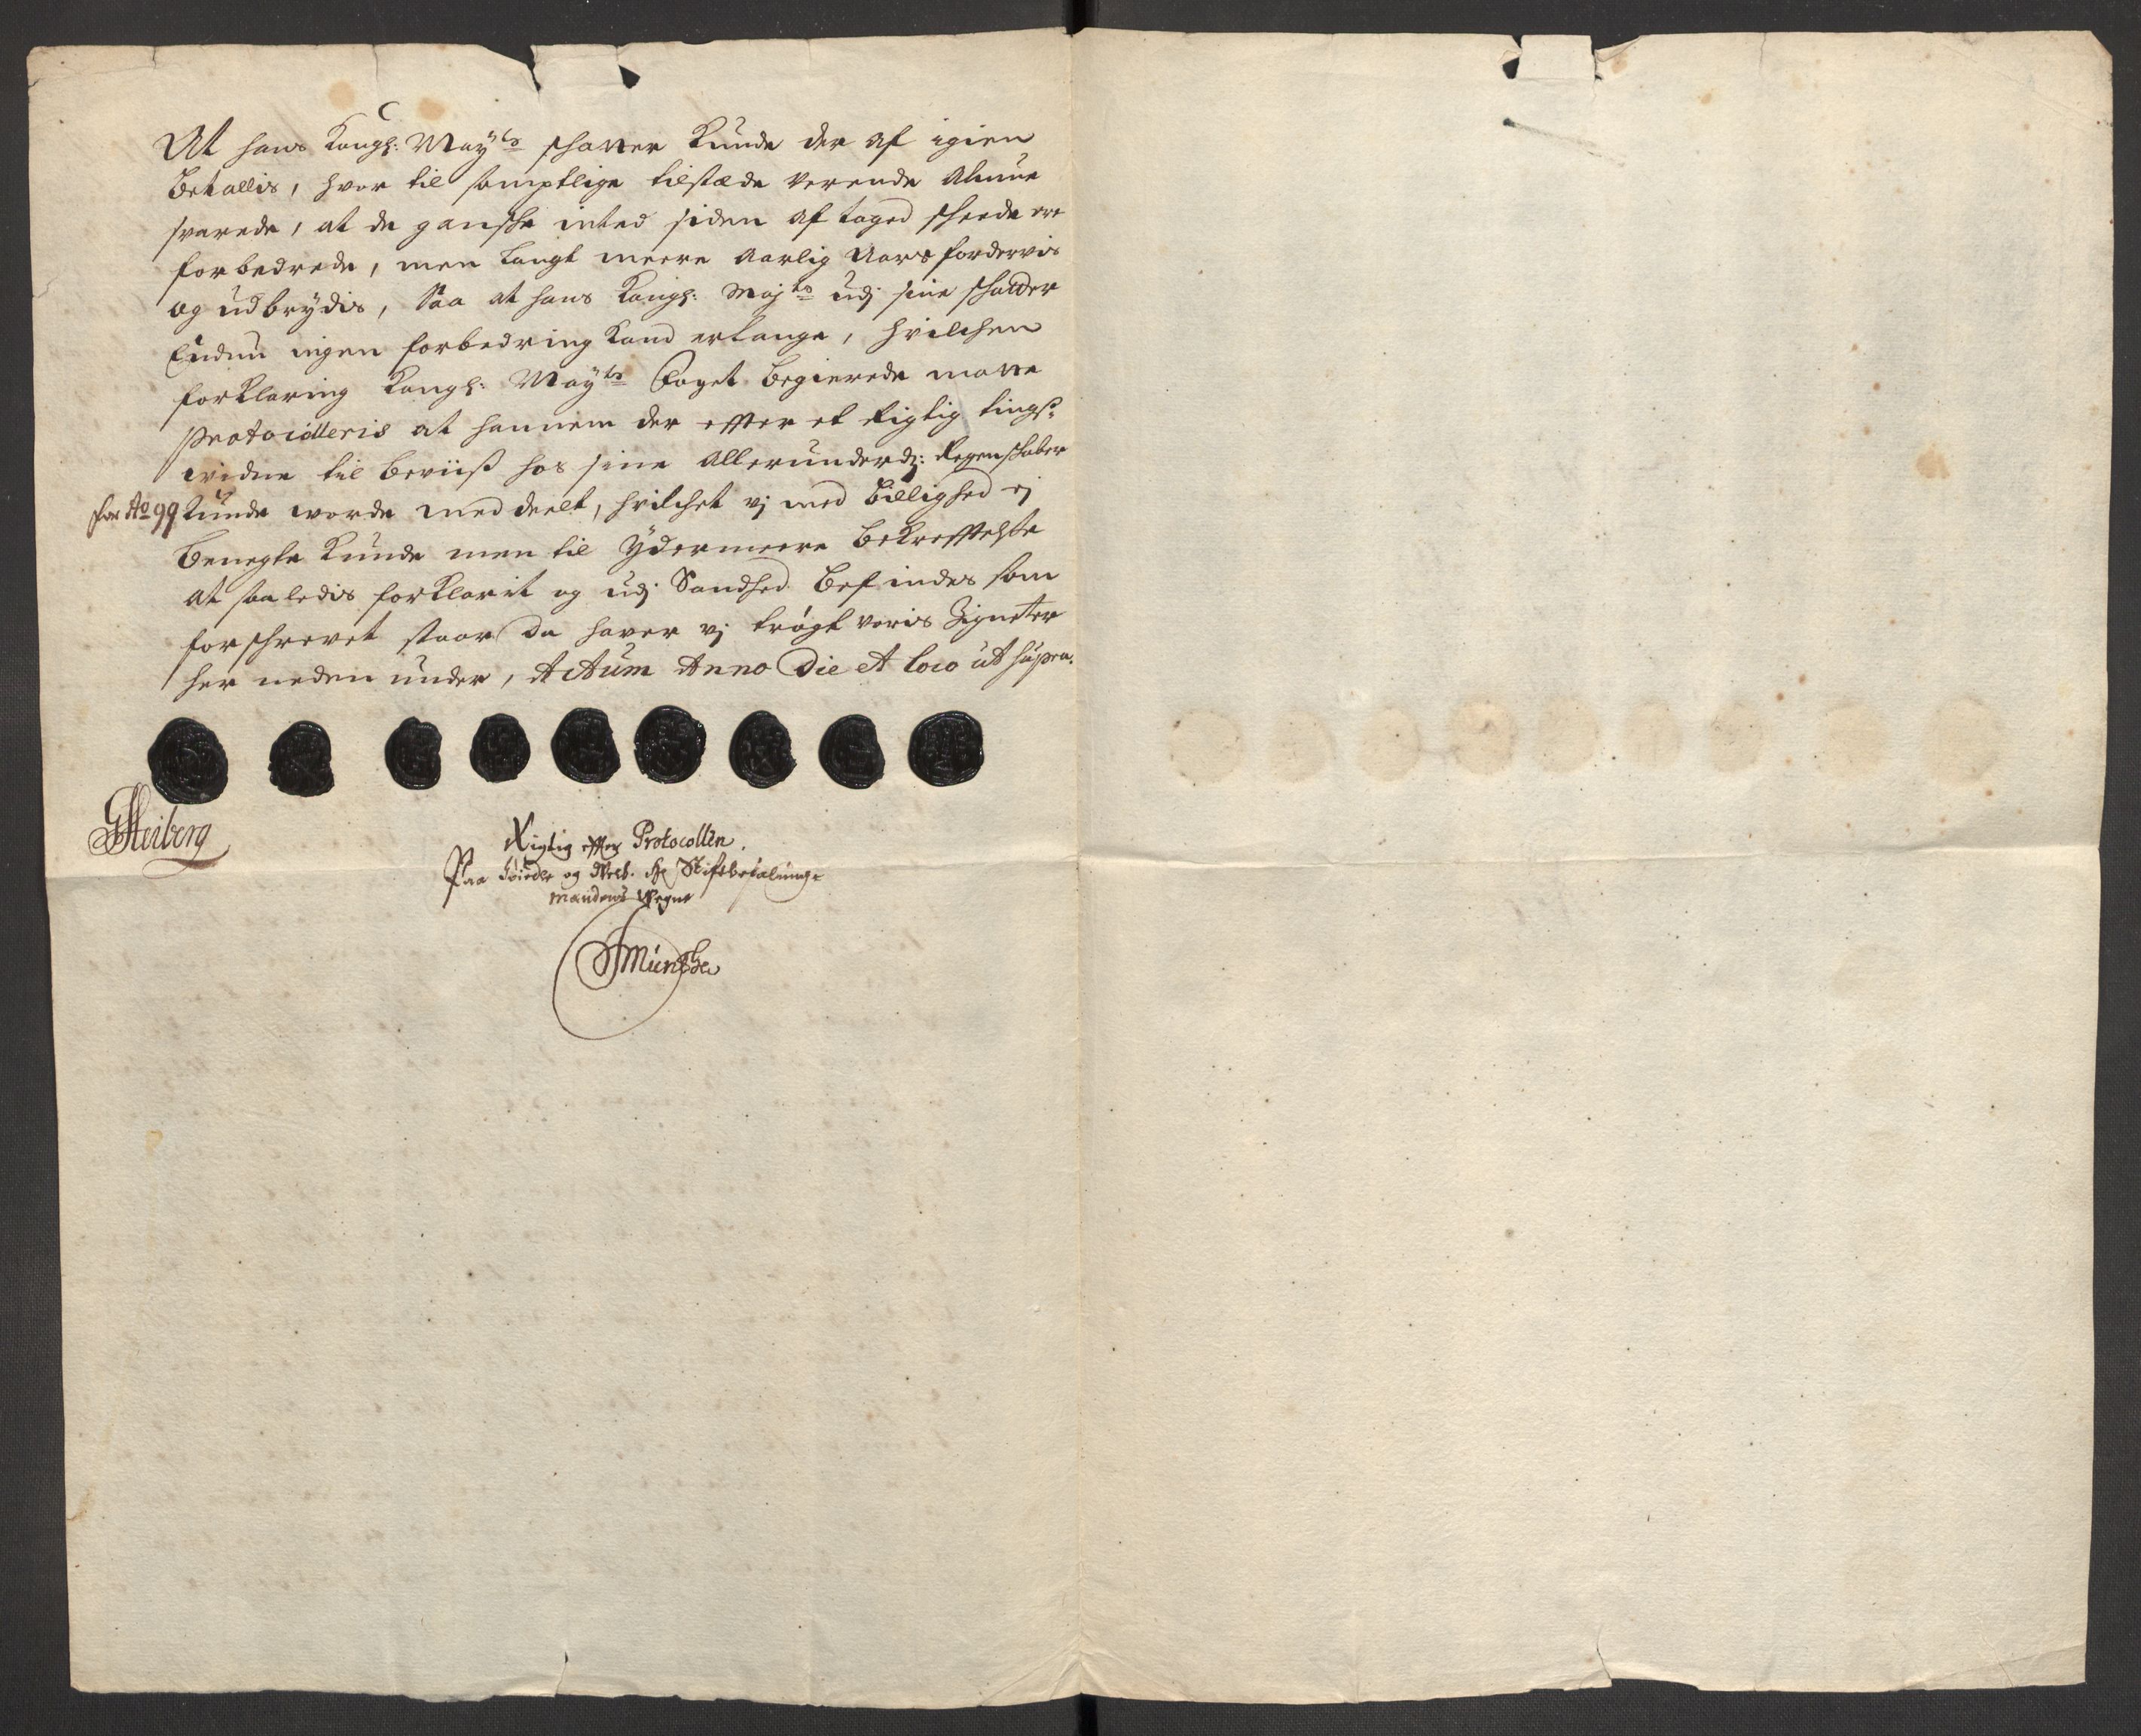 At hans Kongl: Mayts schatter kunde der af igien
betallis, hvor til samptlige tilstæde verende Almue
svarede, at de gansche inted siden af taged scheede ere
forbedrede, men langt meere Aarlig Aars fordervis
og udbrydis, Saa at hans Kongl: Majts udj sine schatter
Endnu ingen forbedring kand erlange, hvilchen
forklaring Kongl: Mayts Foget begierede motte
Protocolleris at hannem der effter et Rigtig tings-
widne til beviiß hos sine Allerunderdj: Regenschaber
for Ao 99 kunde worde meddeelt, hvilchet vj med billighed ej
benegte kunde men til ydermeere bekreffttelse
at saaledis forklarit og udj Sandhed befindes som
forschrevet staar da haver vj trøgt voris Zigneter
her neden under, Actum Anno Die et loco ut supra.
GHeiberg
Rigtig efter Protocollen.
Paa og Stiftsbefalnings-
mandens Vegne
Münthe